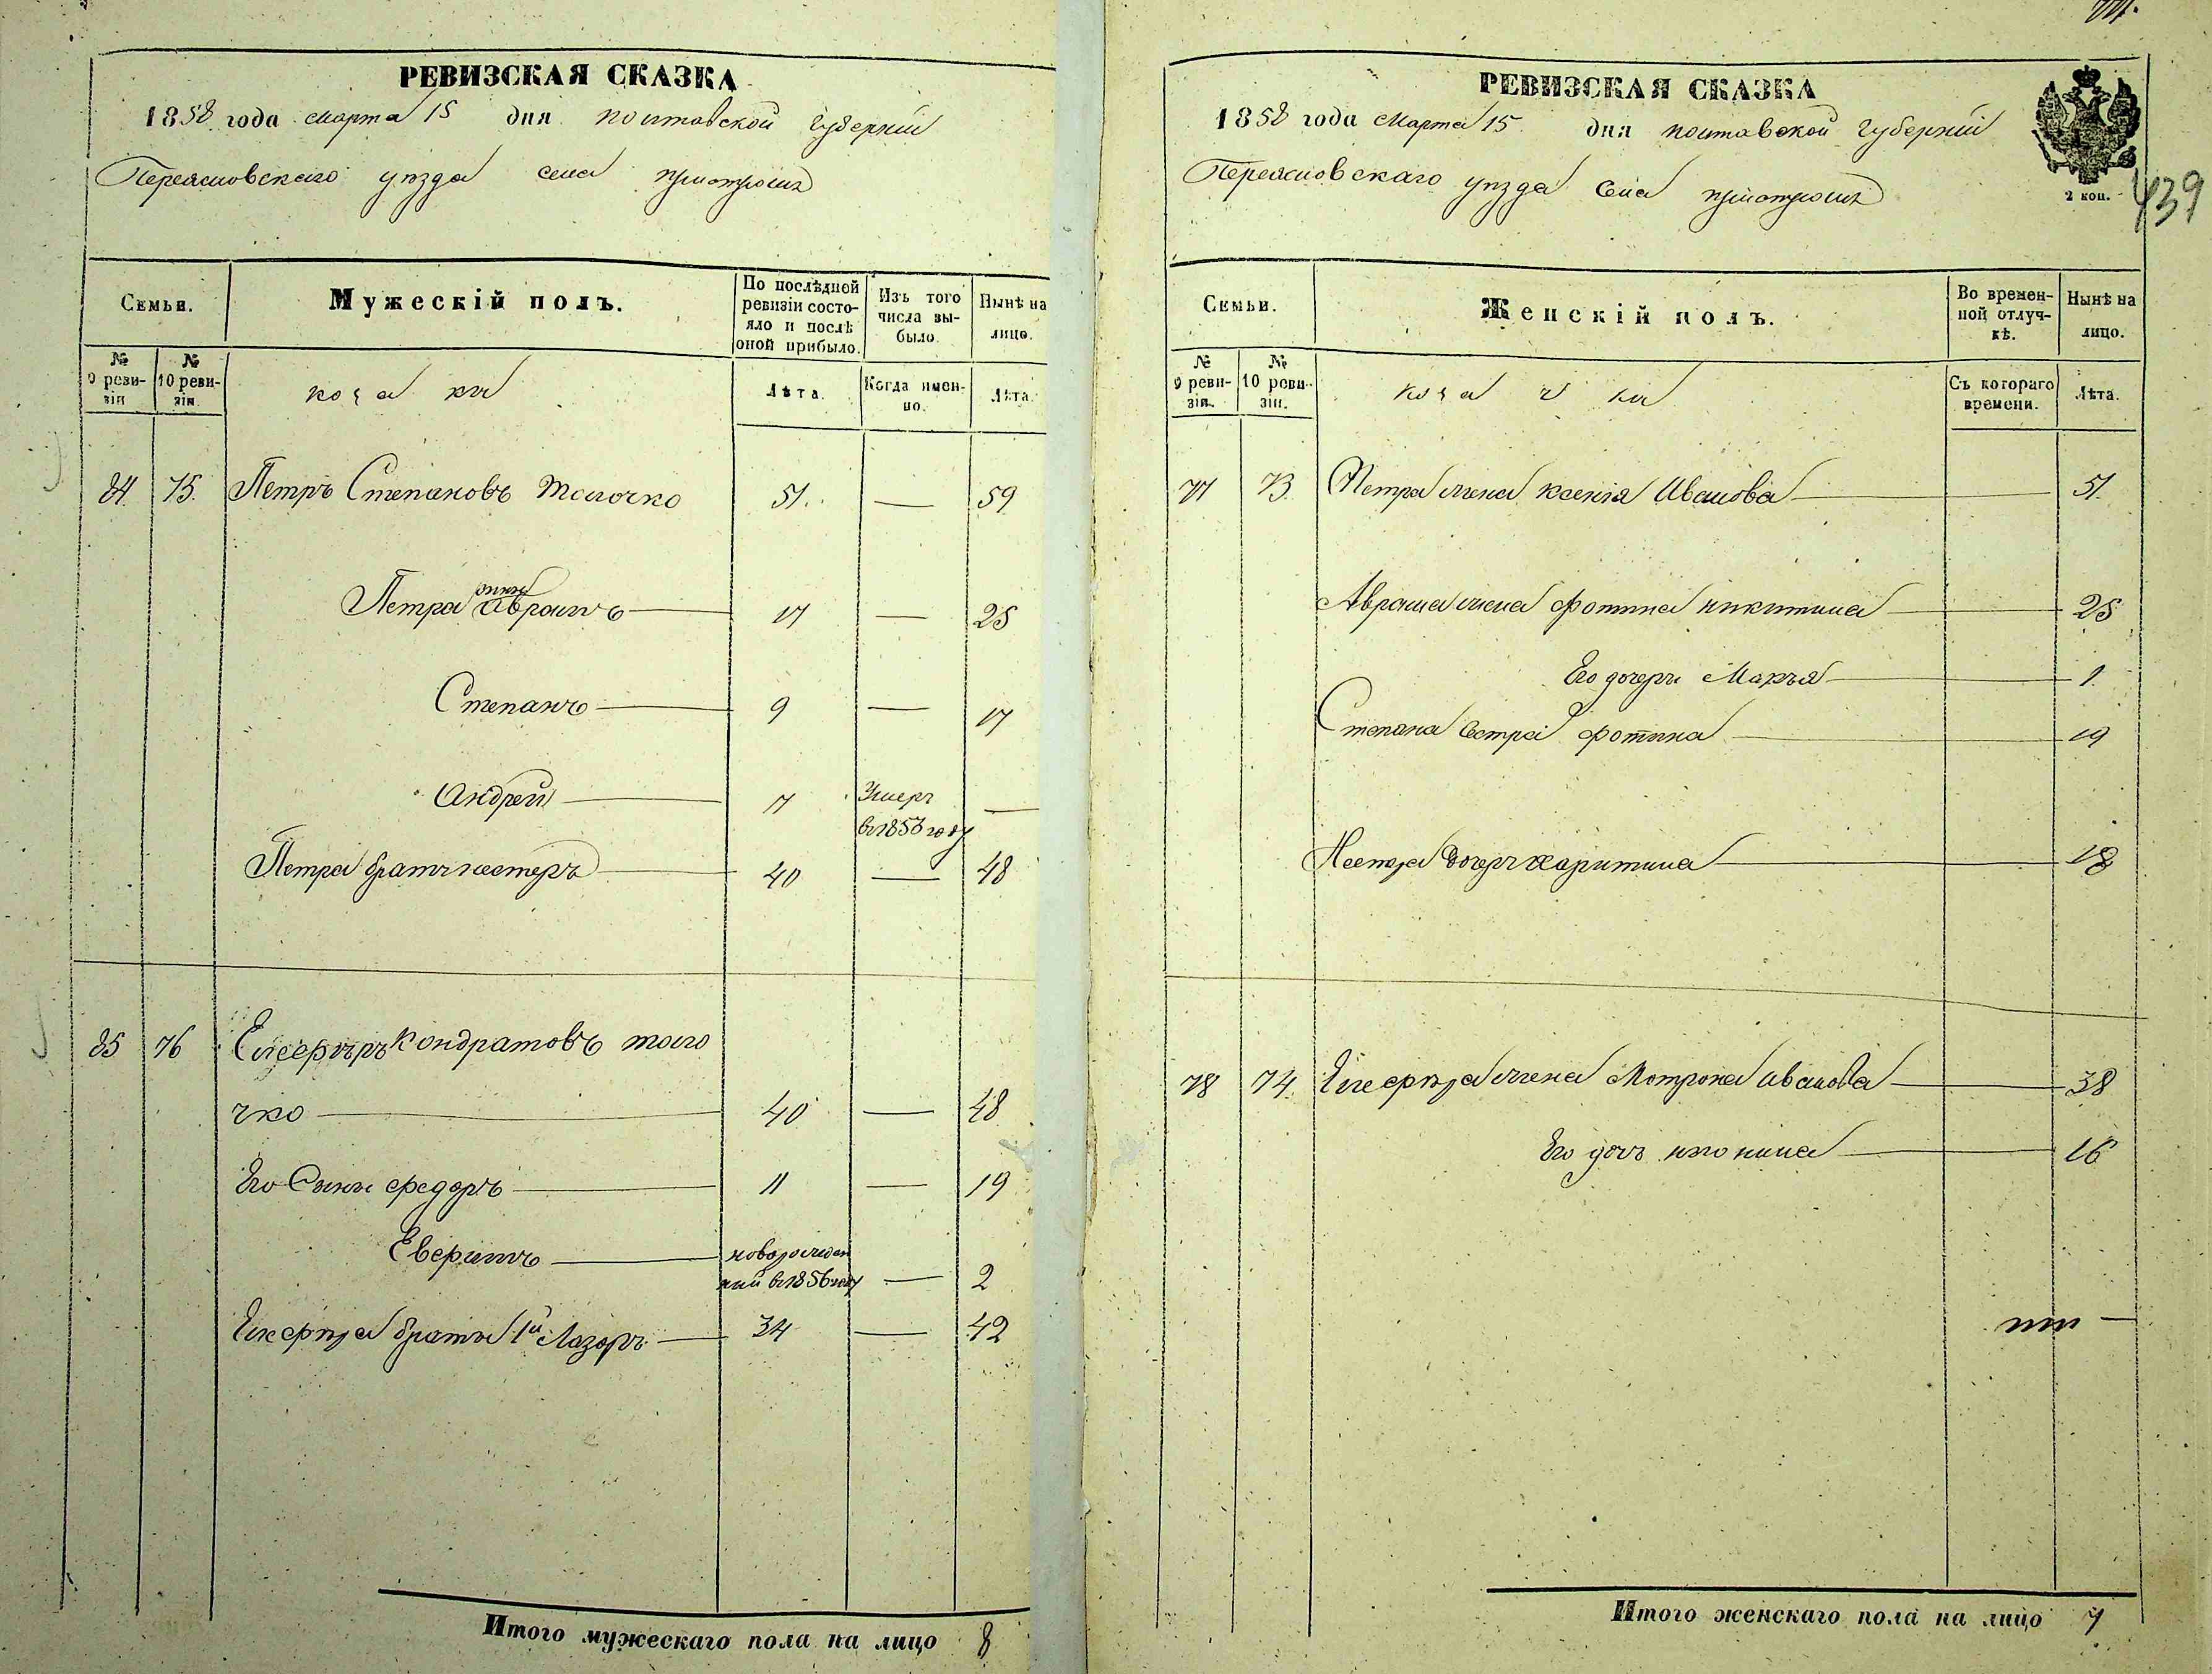 РЕВИЗСКАЯ СКАЗКА
1858 года марта 15 дня полтавской губерніи
Переясловскаго уѣзда села
Семьи.
Мужескій полъ.
По послѣдней ревизіи состояло и послѣ оной прибыло.
Изъ того числа выбыло.
Нынѣ на лицо.
№ 9 ревизіи
№ 10 ревизіи
козаки
Лѣта.
Когда именно.
Лѣта.
84 75. Петръ Степановъ Толочко 51. — 59
Петра сыны Аврамъ 17 — 25
Степанъ 9 — 17
Андрей 7 Умеръ в 1853 году —
Петра братъ нестеръ 40 — 48
85 76 Елеферъ Кондратовъ толо
чко 40 — 48
Его Сыны федоръ 11 — 19
новорожден
ний в 1856 году — 2
братъ 1й Лазоръ 34 — 42
Итого мужескаго пола на лицо 8
РЕВИЗСКАЯ СКАЗКА
1858 года Марта 15 дня полтавской губерніи
Переясловскаго уѣзда села
2 коп.
439
Семьи.
Женскій полъ.
Во временной отлучкѣ.
Нынѣ на лицо.
№ 9 ревизіи.
№ 10 ревизіи.
козачки
Съ котораго времени.
Лѣта.
77 73. Петра жена ксенія Иванова 51.
Аврама жена фотина никитина 25
Его дочеръ Марья 1
Степана Сестра фотина 19
Нестра дочеръ харитина 18
78 74. жена Мотрона иванова 38
Его дочъ 16
Итого женскаго пола на лицо 7